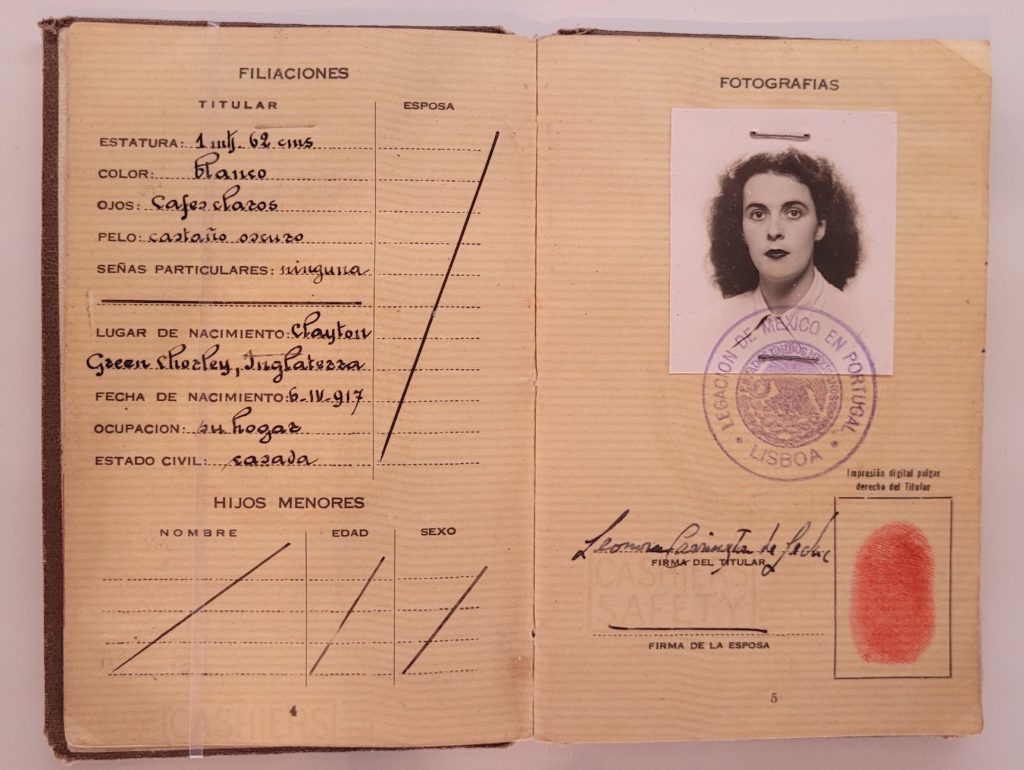 FILIACIONES
TITULAR ESPOSA
ESTATURA: 1 mt. 62 cms
COLOR: blanco
OJOS: Cafes claros
PELO: castaño oscuro
SEÑAS PARTICULARES: ninguna
LUGAR DE NACIMIENTO: Clayton
Green Chorley, Inglaterra
FECHA DE NACIMIENTO: 6-IV-917
OCUPACION: su hogar
ESTADO CIVIL: casada
HIJOS MENORES
NOMBRE EDAD SEXO
CASHIERS
4
FOTOGRAFIAS
LEGACION DE MEXICO EN PORTUGAL
LISBOA
Impresión digital pulgar
derecho del Titular
Leonora Carrington de Leduc
FIRMA DEL TITULAR
CASHIERS
SAFETY
FIRMA DE LA ESPOSA
5